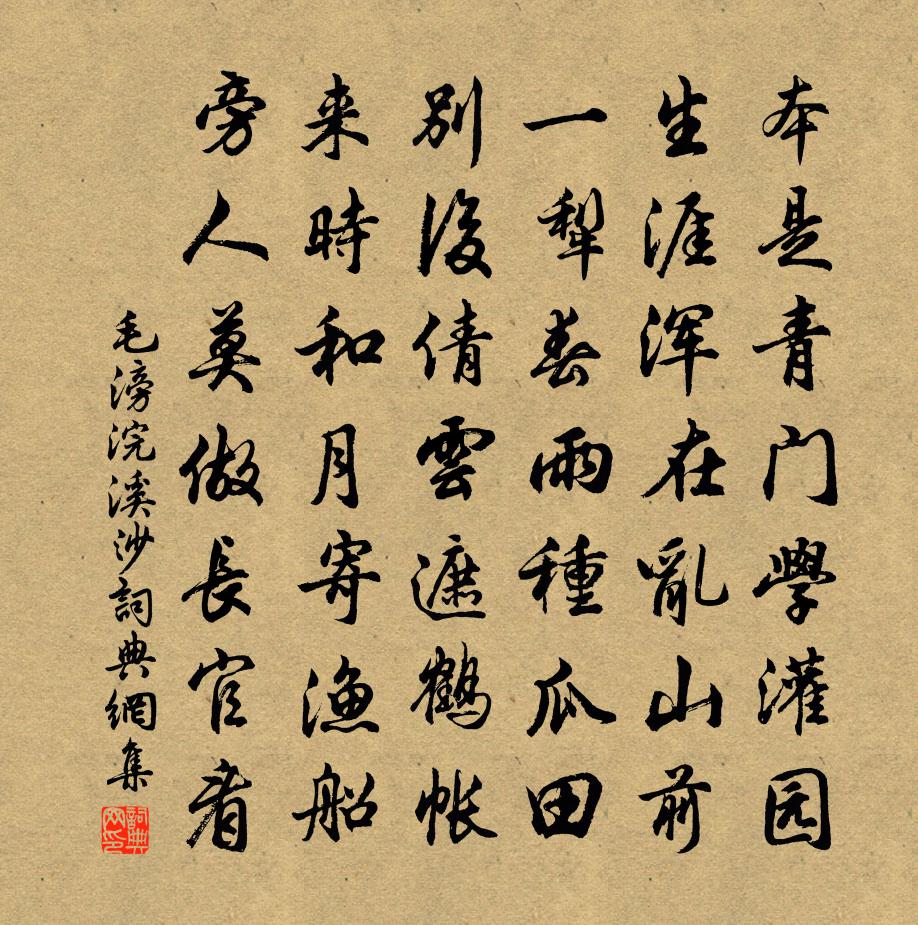 本是青门學灌园
生涯浑在亂山前
一犁春雨種瓜田
別後倩雲遮鶴帐
来時和月寄渔船
旁人莫做長官看
毛滂浣溪沙詞典網集
詞典网印